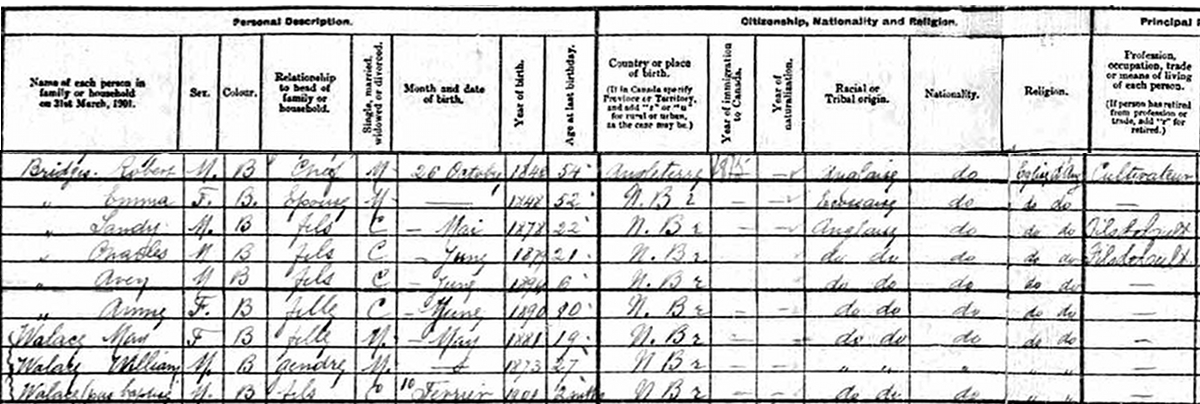 Personal Description.
Citizenship, Nationality and Religion.
Principal
Name of each person in family or household on 31st March, 1901.
Sex.
Colour.
Relationship to head of family or household.
Single, married, widowed or divorced.
Month and date of birth.
Year of birth.
Age at last birthday.
Country or place of birth.
(If in Canada specify Province or Territory, and add "r" or "u" for rural or urban, as the case may be.)
Year of immigration to Canada.
Year of naturalization.
Racial or Tribal origin.
Nationality.
Religion.
Profession, occupation, trade or means of living of each person.
(If person has retired from profession or trade, add "r" for retired.)
Bridges Robert M. B Chef M 26 Angleterre do Cultivateur
" Emma F. B. M — 1848 52 N. B r — do do do —
" M. B fils C — Mai 1878 22 N. B r — do do do
" Charles M B fils C — June 21 N. B r — do do do do do
" M B fils C — June 6 N. B r — do do do do do —
" Annie F. B fille C — 1890 10 N. B r — do do do do do —
Walace May F B fille M. — May 1881 19 N. B r — do do do do do —
Walace William M. B M. — 1873 27 N B r — " " " " " —
Walace pas baptisé M. B fils C 10 1901 N B r — do do do —